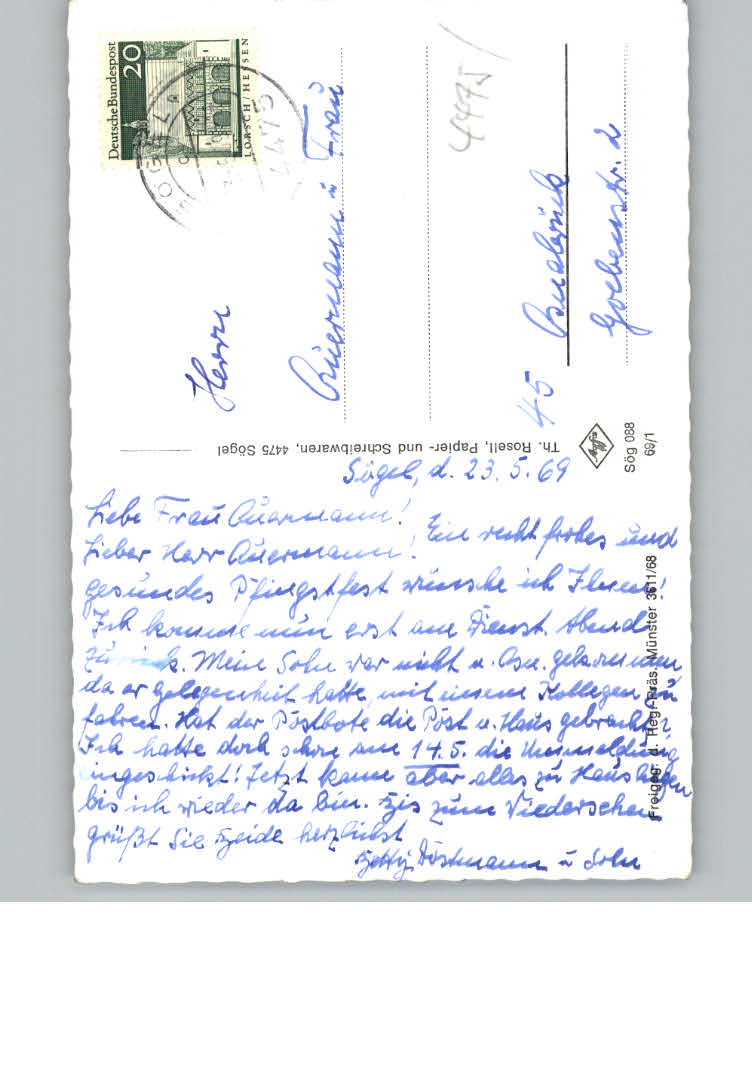 Deutsche Bundespost
20
LORSCH / HESSEN
4475
4475
Herrn
Auermann u Frau
45 Osnabrück
Goebenstr. 2
Th. Rosell, Papier- und Schreibwaren, 4475 Sögel
Agfa
Sög 088
69/1
Freigeg. d. Reg.-Präs. Münster 3611/68
Sögel, d. 23.5.69
Liebe Frau Auermann!
Lieber Herr Auermann! Ein recht frohes und
gesundes Pfingstfest wünsche ich Ihnen!
Ich komme nun erst am Dienst. Abend
zurück. Mein Sohn war nicht n. Osn. gekommen
da er Gelegenheit hatte, mit einem Kollegen zu
fahren. Hat der Postbote die Post n. Haus gebracht?
Ich hatte doch schon am 14.5. die Ummeldung
eingeschickt! Jetzt kann aber alles zu Haus liegen
bis ich wieder da bin. Bis zum Wiedersehen
grüßt Sie Beide herzlichst
Betty Dostmann u Sohn